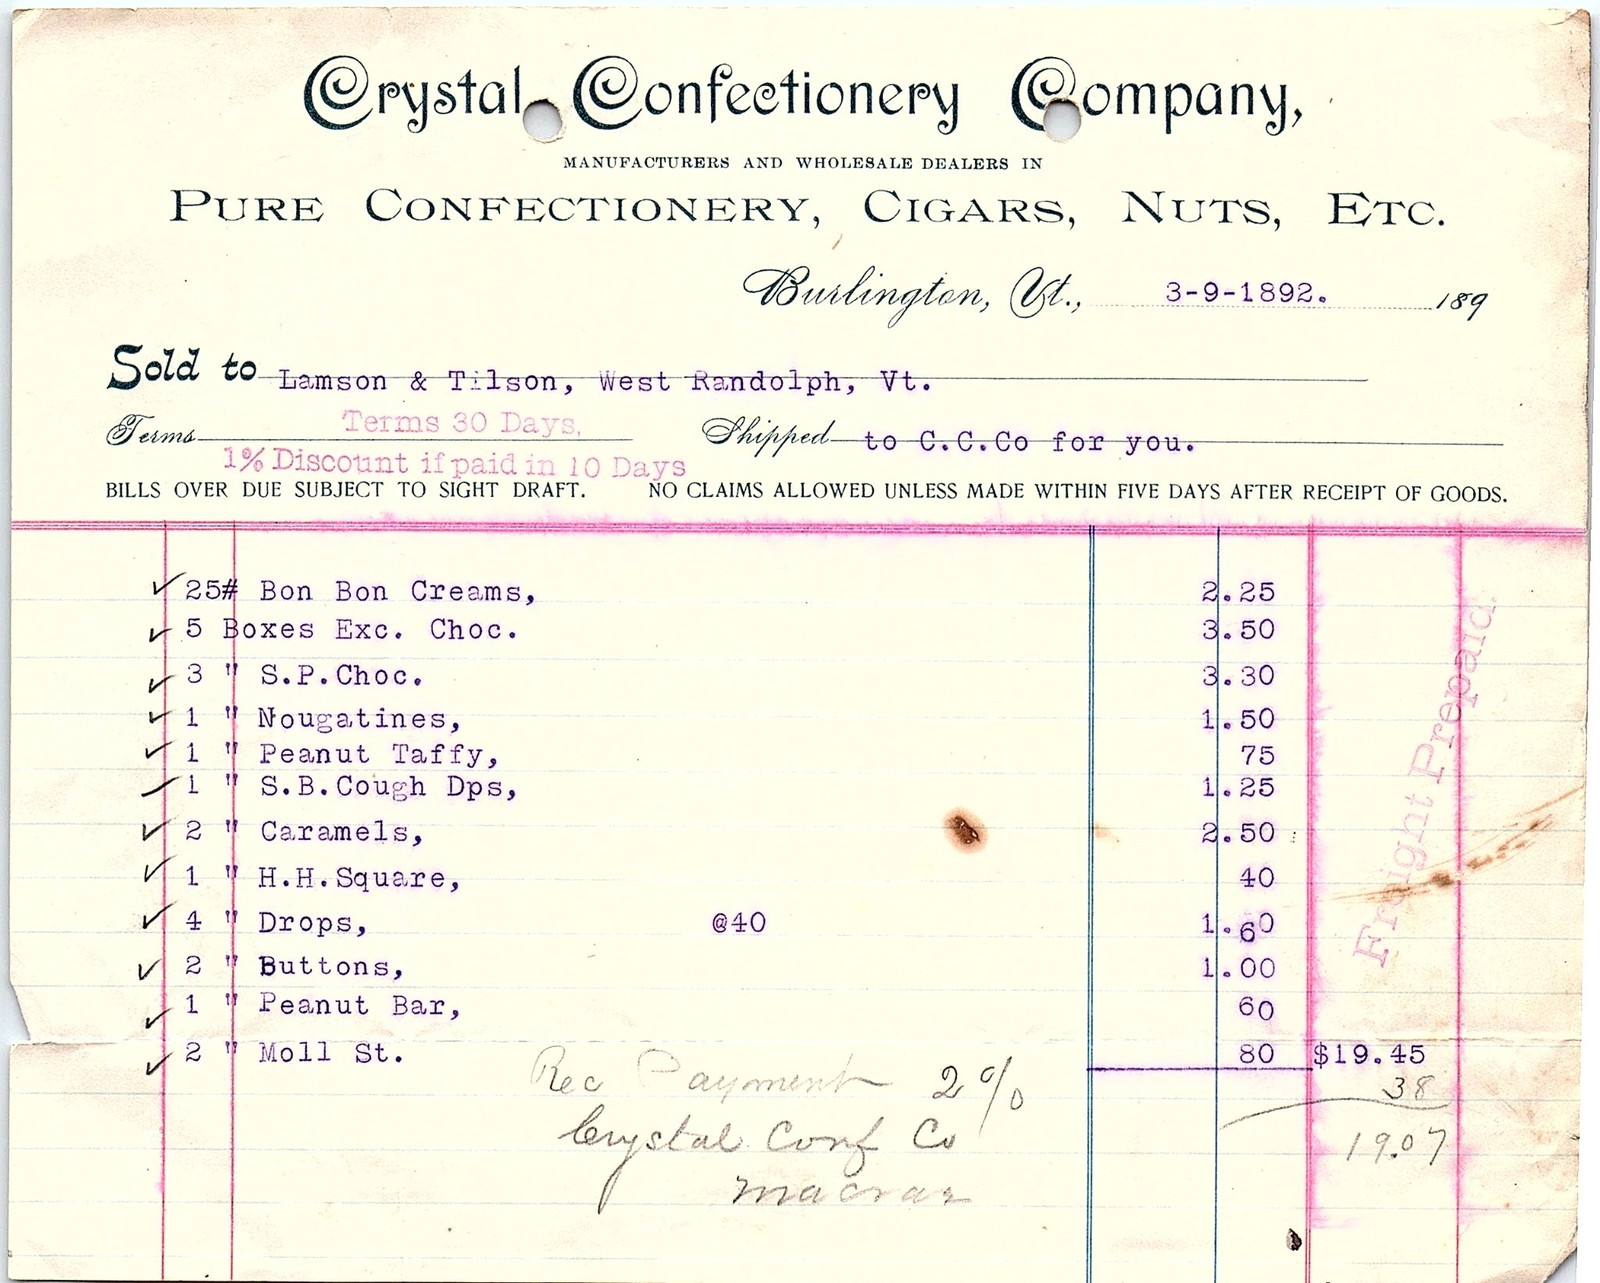 Crystal Confectionery Company,
MANUFACTURERS AND WHOLESALE DEALERS IN
PURE CONFECTIONERY, CIGARS, NUTS, ETC.
Burlington, Vt., 3-9-1892. 189
Sold to Lamson & Tilson, West Randolph, Vt.
Terms Terms 30 Days, Shipped to C.C.Co for you.
1% Discount if paid in 10 Days
BILLS OVER DUE SUBJECT TO SIGHT DRAFT. NO CLAIMS ALLOWED UNLESS MADE WITHIN FIVE DAYS AFTER RECEIPT OF GOODS.
25# Bon Bon Creams, 2.25
5 Boxes Exc. Choc. 3.50
3 " S.P.Choc. 3.30
1 " Nougatines, 1.50
1 " Peanut Taffy, 75
1 " S.B.Cough Dps, 1.25
2 " Caramels, 2.50
1 " H.H.Square, 40
4 " Drops, @40 1.60
2 " Buttons, 1.00
1 " Peanut Bar, 60
2 " Moll St. 80 $19.45
Freight Prepaid.
Rec Payment 2% 38
Crystal Conf Co 19.07